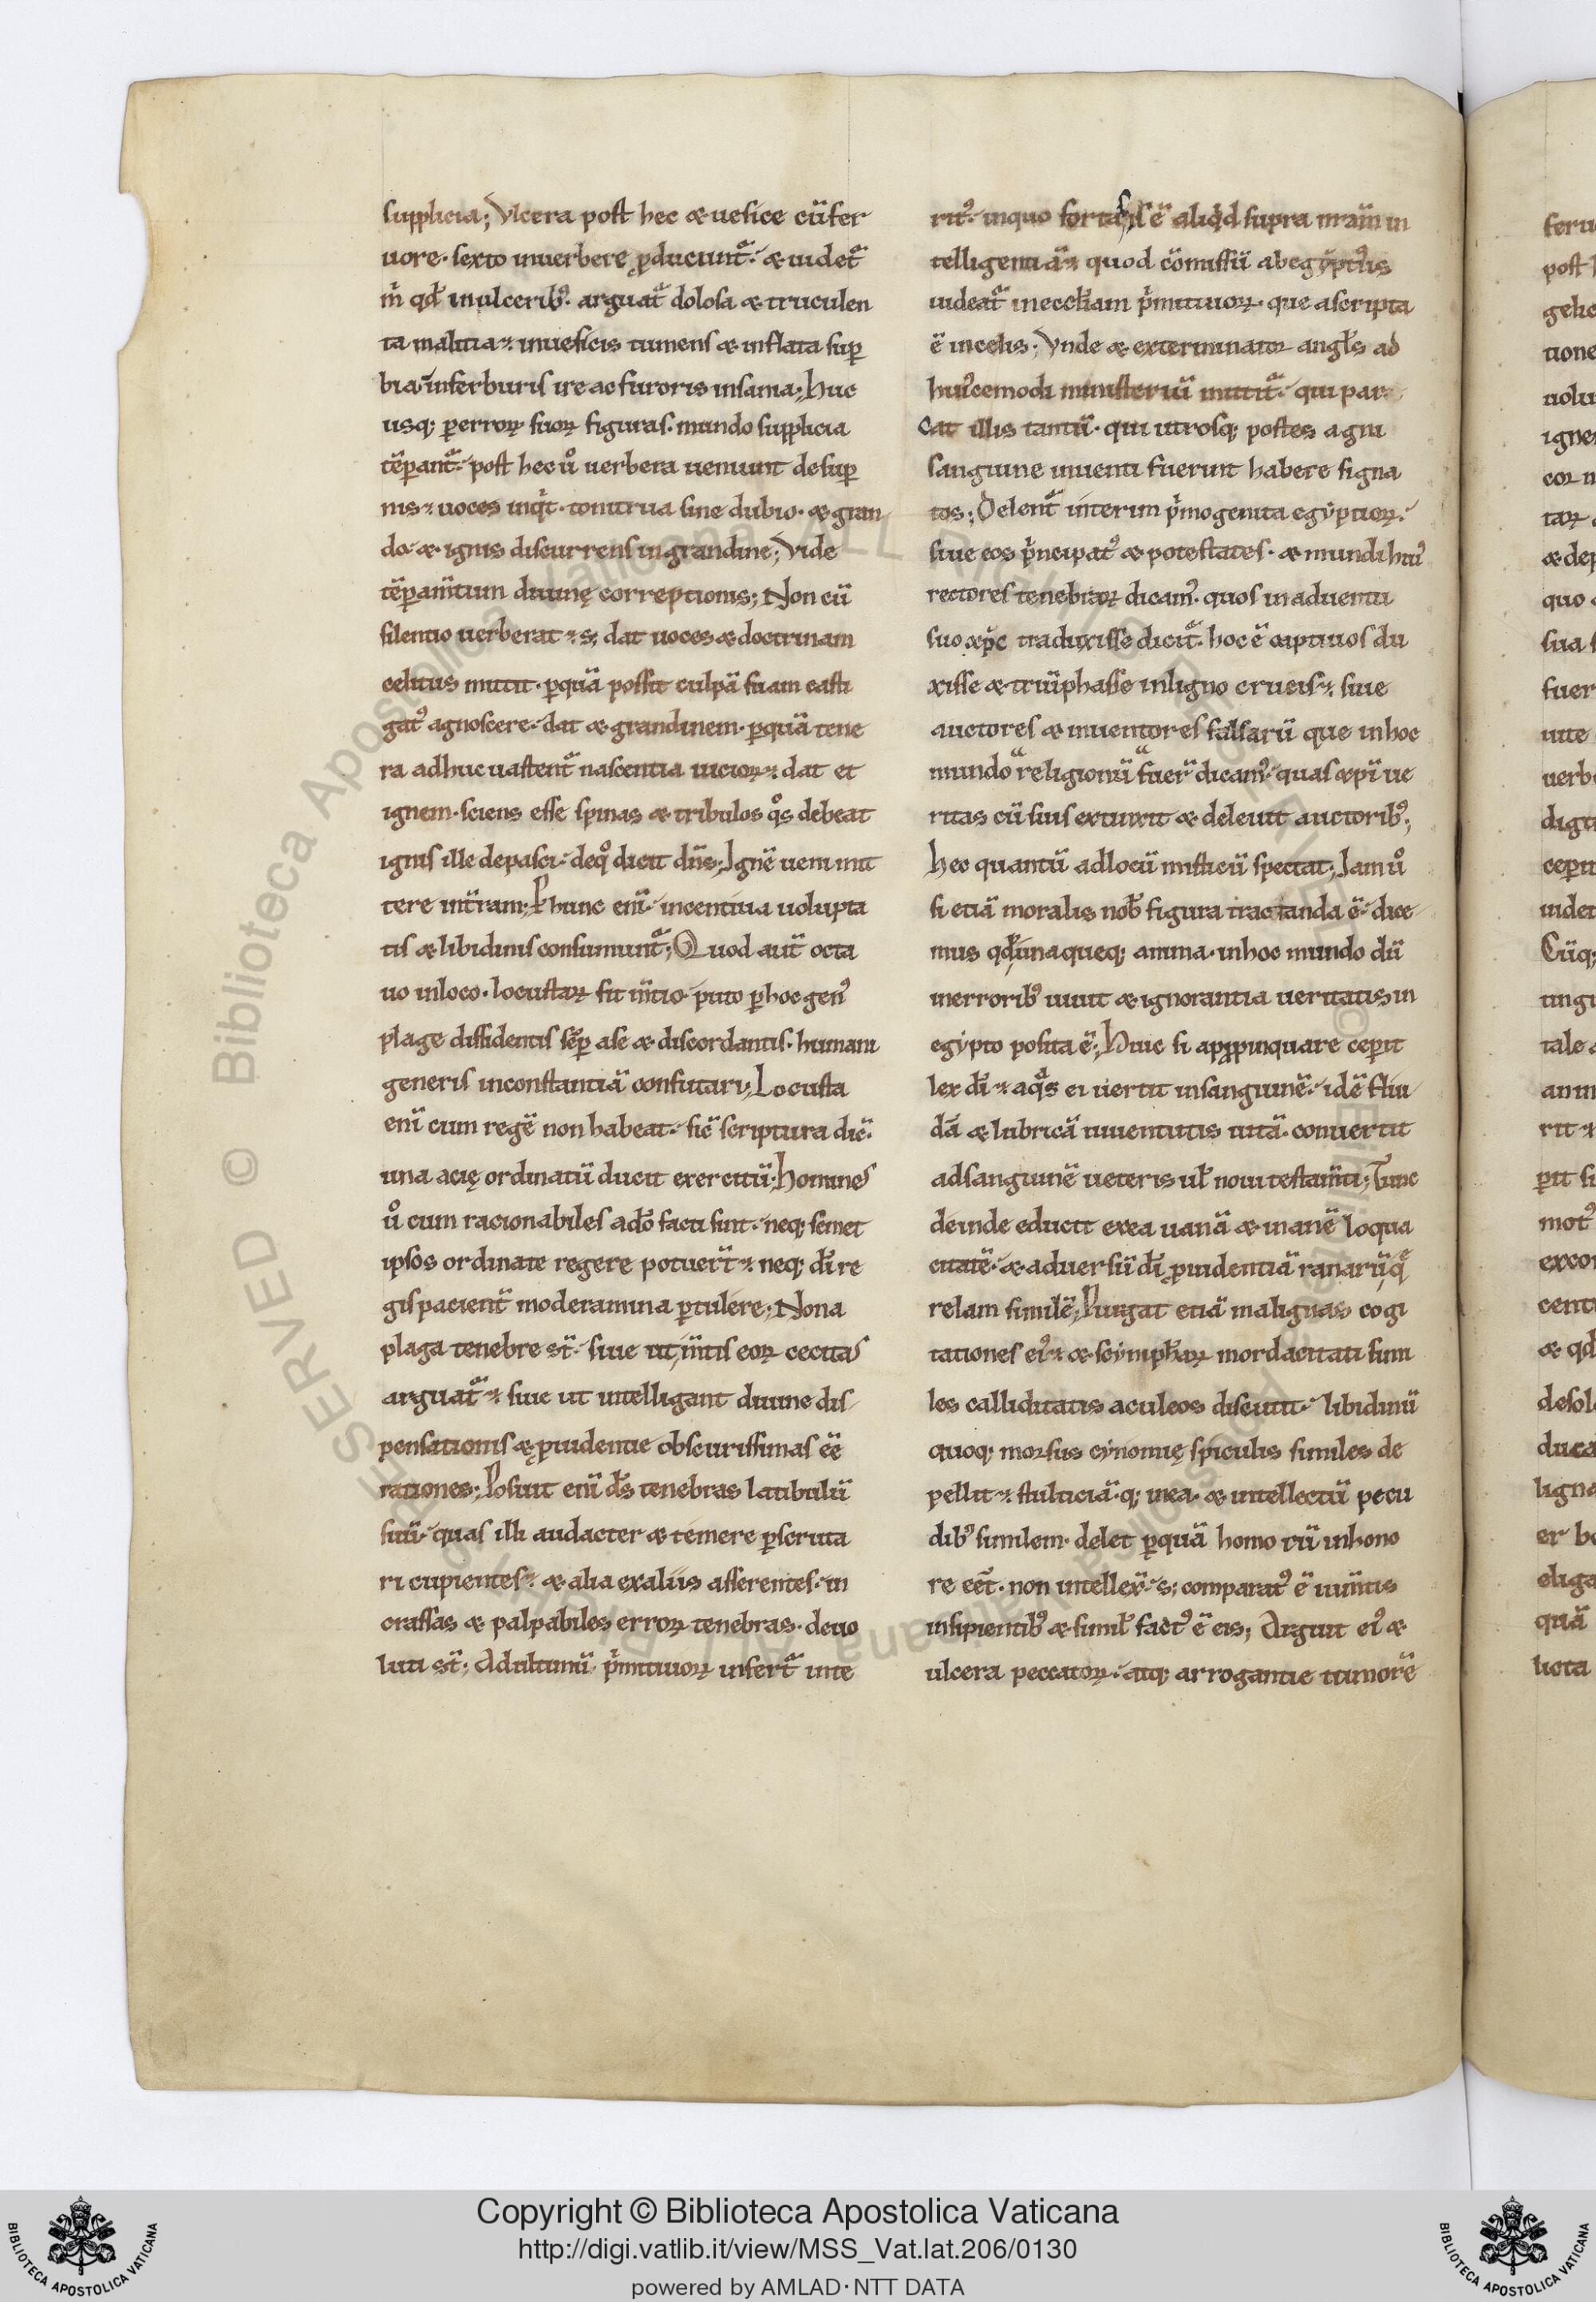 supplicia; Vlcera post hec & uesice cū fer
uore· sexto inuerbere ꝓducunt᷑· & uidet᷑
m̄ qd̄ inulcerib᷒· arguat᷑ dolosa & truculen
ta malitia· inuesicis tumens & inflata suꝑ
bia· inferburis ire ac furoris insania; Huc
usq; ꝑ erroꝝ suoꝝ figuras· mundo supplicia
tēꝑant᷑· post hec u̾ uerbera ueniunt desuꝑ
nis· uoces inqͥt· tonitrua sine dubio· & gran
do· & ignis discurrens ingrandine; Vide
tēꝑam̄tum diuinę correptionis; Non cū
silentio uerberat· s; dat uoces & doctrinam
celitus mittit· ꝑquā possit culpā suam casti
gat᷒ agnoscere· dat & grandinem· ꝑquā tene
ra adhuc uastent᷑ nascentia uicioꝝ· dat et
ignem· sciens esse spinas & tribulos qͦs debeat
ignis ille depasci· deqͦ dicit dn̄s; Ignē ueni mit
tere int̄ram; Ꝑ hunc eni̅· incentiua uolupta
tis & libidinis consumunt᷑; Quod aut̄ octa
uo inloco· locustaꝝ fit m̄tio· puto ꝑ hoc gen᷒
plage dissidentis sēꝑ ase & discordantis· humani
generis inconstantiā confutari; Locusta
eni̅ cum regē non habeat· sic̄ scriptura dic̄·
una acię ordinatū ducit exercitū; Homines
u̾ cum racionabiles adō facti sint· neq; semet
ipsos ordinate regere potuer̄t· neq; dī re
gis pacient̄ moderamina ꝑtulere; Nona
plaga tenebre st̄· siue ut m̄tis eoꝝ cecitas
arguat᷑· siue ut intelligant diuine dis
pensationis & ꝓuidentie obscurissimas ēē
rationes; Posuit eni̅ ds̄ tenebras latibulū
suū· quas illi audacter & temere ꝑscruta
ri cupientes· & alia exaliis asserentes· in
crassas & palpabiles erroꝝ tenebras· deuo
luti st̄; Adultimū pͥmitiuoꝝ infert᷑ inte
rit᷒· inquo fortassis ē aliqͥd supra nr̄am in
telligentiā· quod cōmissū abegyptiis
uideat᷑ ineccl̄iam pͥmitiuoꝝ· que ascripta
ē incelis· Vnde & exterminator angl̄s ad
hui᷒cemodi ministeriū mittit᷑· qui par
cat illis tantū· qui utrosq; postes agni
sanguine inuenti fuerint habere signa
tos; Delent᷑ interim pͥmogenita egyptioꝝ·
siue eos pͥncipat᷒ & potestates· & mundi hui᷒
rectores tenebraꝝ dicam᷒· quos inaduentu
suo xp̄c traduxisse dicit᷑· hoc ē captiuos du
xisse & triūphasse inligno crucis· siue
auctores & inuentores falsarū que inhoc
mundo religionū fuer̄ dicam᷒· quas xp̄i ue
ritas cū suis extinxit & deleuit auctorib᷒;
Hec quantū adlocū misticū spectat; Iam u̾
si etiā moralis nob̄ figura tractanda ē· dice
mus qd̄ unaqueq; anima· inhoc mundo dū
inerrorib᷒ uiuit & ignorantia ueritatis in
egypto posita ē; Huic si appropinquare ceꝑit
lex dī· aqͣs ei uertit insanguinē· idē flui
dā & lubricā iuuentutis uitā· conuertit
adsanguinē ueteris ul̄ noui testam̄ti; Tunc
deinde educit exea uanā & inanē loqua
citatē· & aduersū dī ꝓuidentiā ranarū q̄
relam similē; Purgat etiā malignas cogi
tationes ei᷒· & scyniph̄aꝝ mordacitati simi
les calliditatis aculeos discutit· libidinū
quoq; morsus cynomię spiculis similes de
pellit· stulticiā q; inea· & intellectū pecu
dib᷒ similem· delet ꝑquā homo cū inhono
re eēt· non intellex̄· s; comparat᷒ ē ium̄tis
insipientib᷒ & simil̄ fact᷒ ē eis; Arguit ei᷒ &
ulcera peccatoꝝ· atq; arrogantie tumorē
Copyright © Biblioteca Apostolica Vaticana
http://digi.vatlib.it/view/MSS_Vat.lat.206/0130
powered by AMLAD·NTT DATA